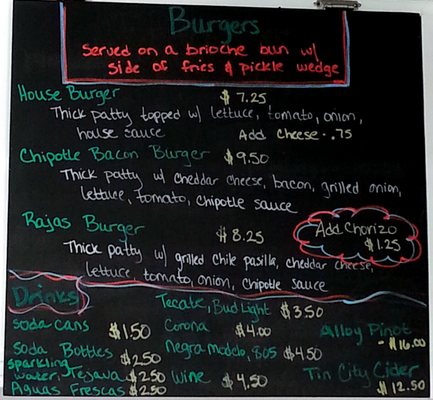 Burgers
Served on a brioche bun w/
side of fries & pickle wedge
House Burger $7.25
Thick patty topped w/ lettuce, tomato, onion,
house sauce Add Cheese - .75
Chipotle Bacon Burger $9.50
Thick patty w/ cheddar cheese, bacon, grilled onion,
lettuce, tomato, chipotle sauce
Rajas Burger $8.25
Add Chorizo
$1.25
Thick patty w/ grilled chile pasilla, cheddar cheese,
lettuce, tomato, onion, chipotle sauce
Drinks
Soda cans $1.50
Soda Bottles $2.50
sparkling
water, Tejava $2.50
Aguas Frescas $2.50
Tecate, Bud Light $3.50
Corona $4.00
Negra Modelo, 805 $4.50
Wine $4.50
Alloy Pinot
- $16.00
Tin City Cider
$12.50